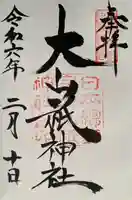 奉拝
大山祇神社
令和六年
二月十日